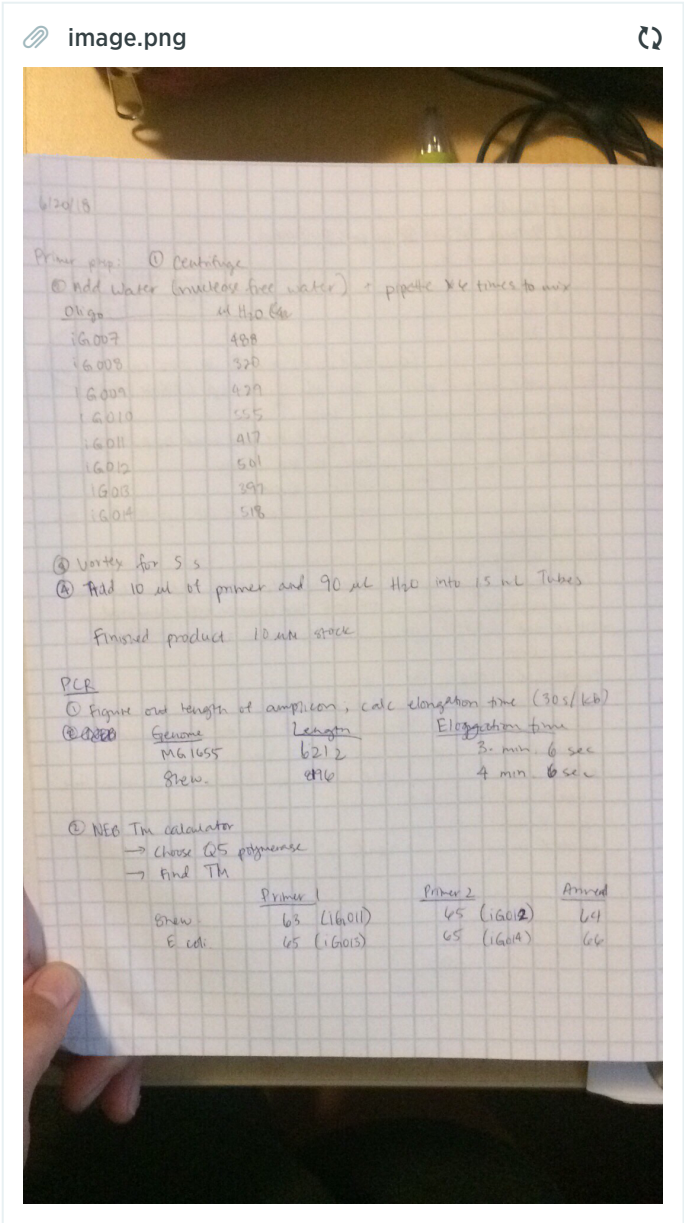 image.png
6/20/18
Primer prep: ① Centrifuge
② Add water (nuclease free water) - pipette x4 times to mix
Oligo ul H2O
iG007 488
iG008 320
iG009 429
iG010 555
iG011 417
iG012 501
iG013 397
iG014 518
③ Vortex for 5 s
④ Add 10 ul of primer and 90 uL H2O into 1.5 mL Tubes
Finished product 10 uM stock
PCR
① Figure out length of amplicon, calc elongation time (30s/kb)
Genome Length Elongation time
MG1655 6212 3 min 6 sec
Shew. 4 min 6 sec
② NEB Tm calculator
→ Choose Q5 polymerase
→ Find TM
Primer 1 Primer 2 Anneal
Shew 63 (iG011) 65 (iG012) 64
E coli 65 (iG013) 65 (iG014) 66